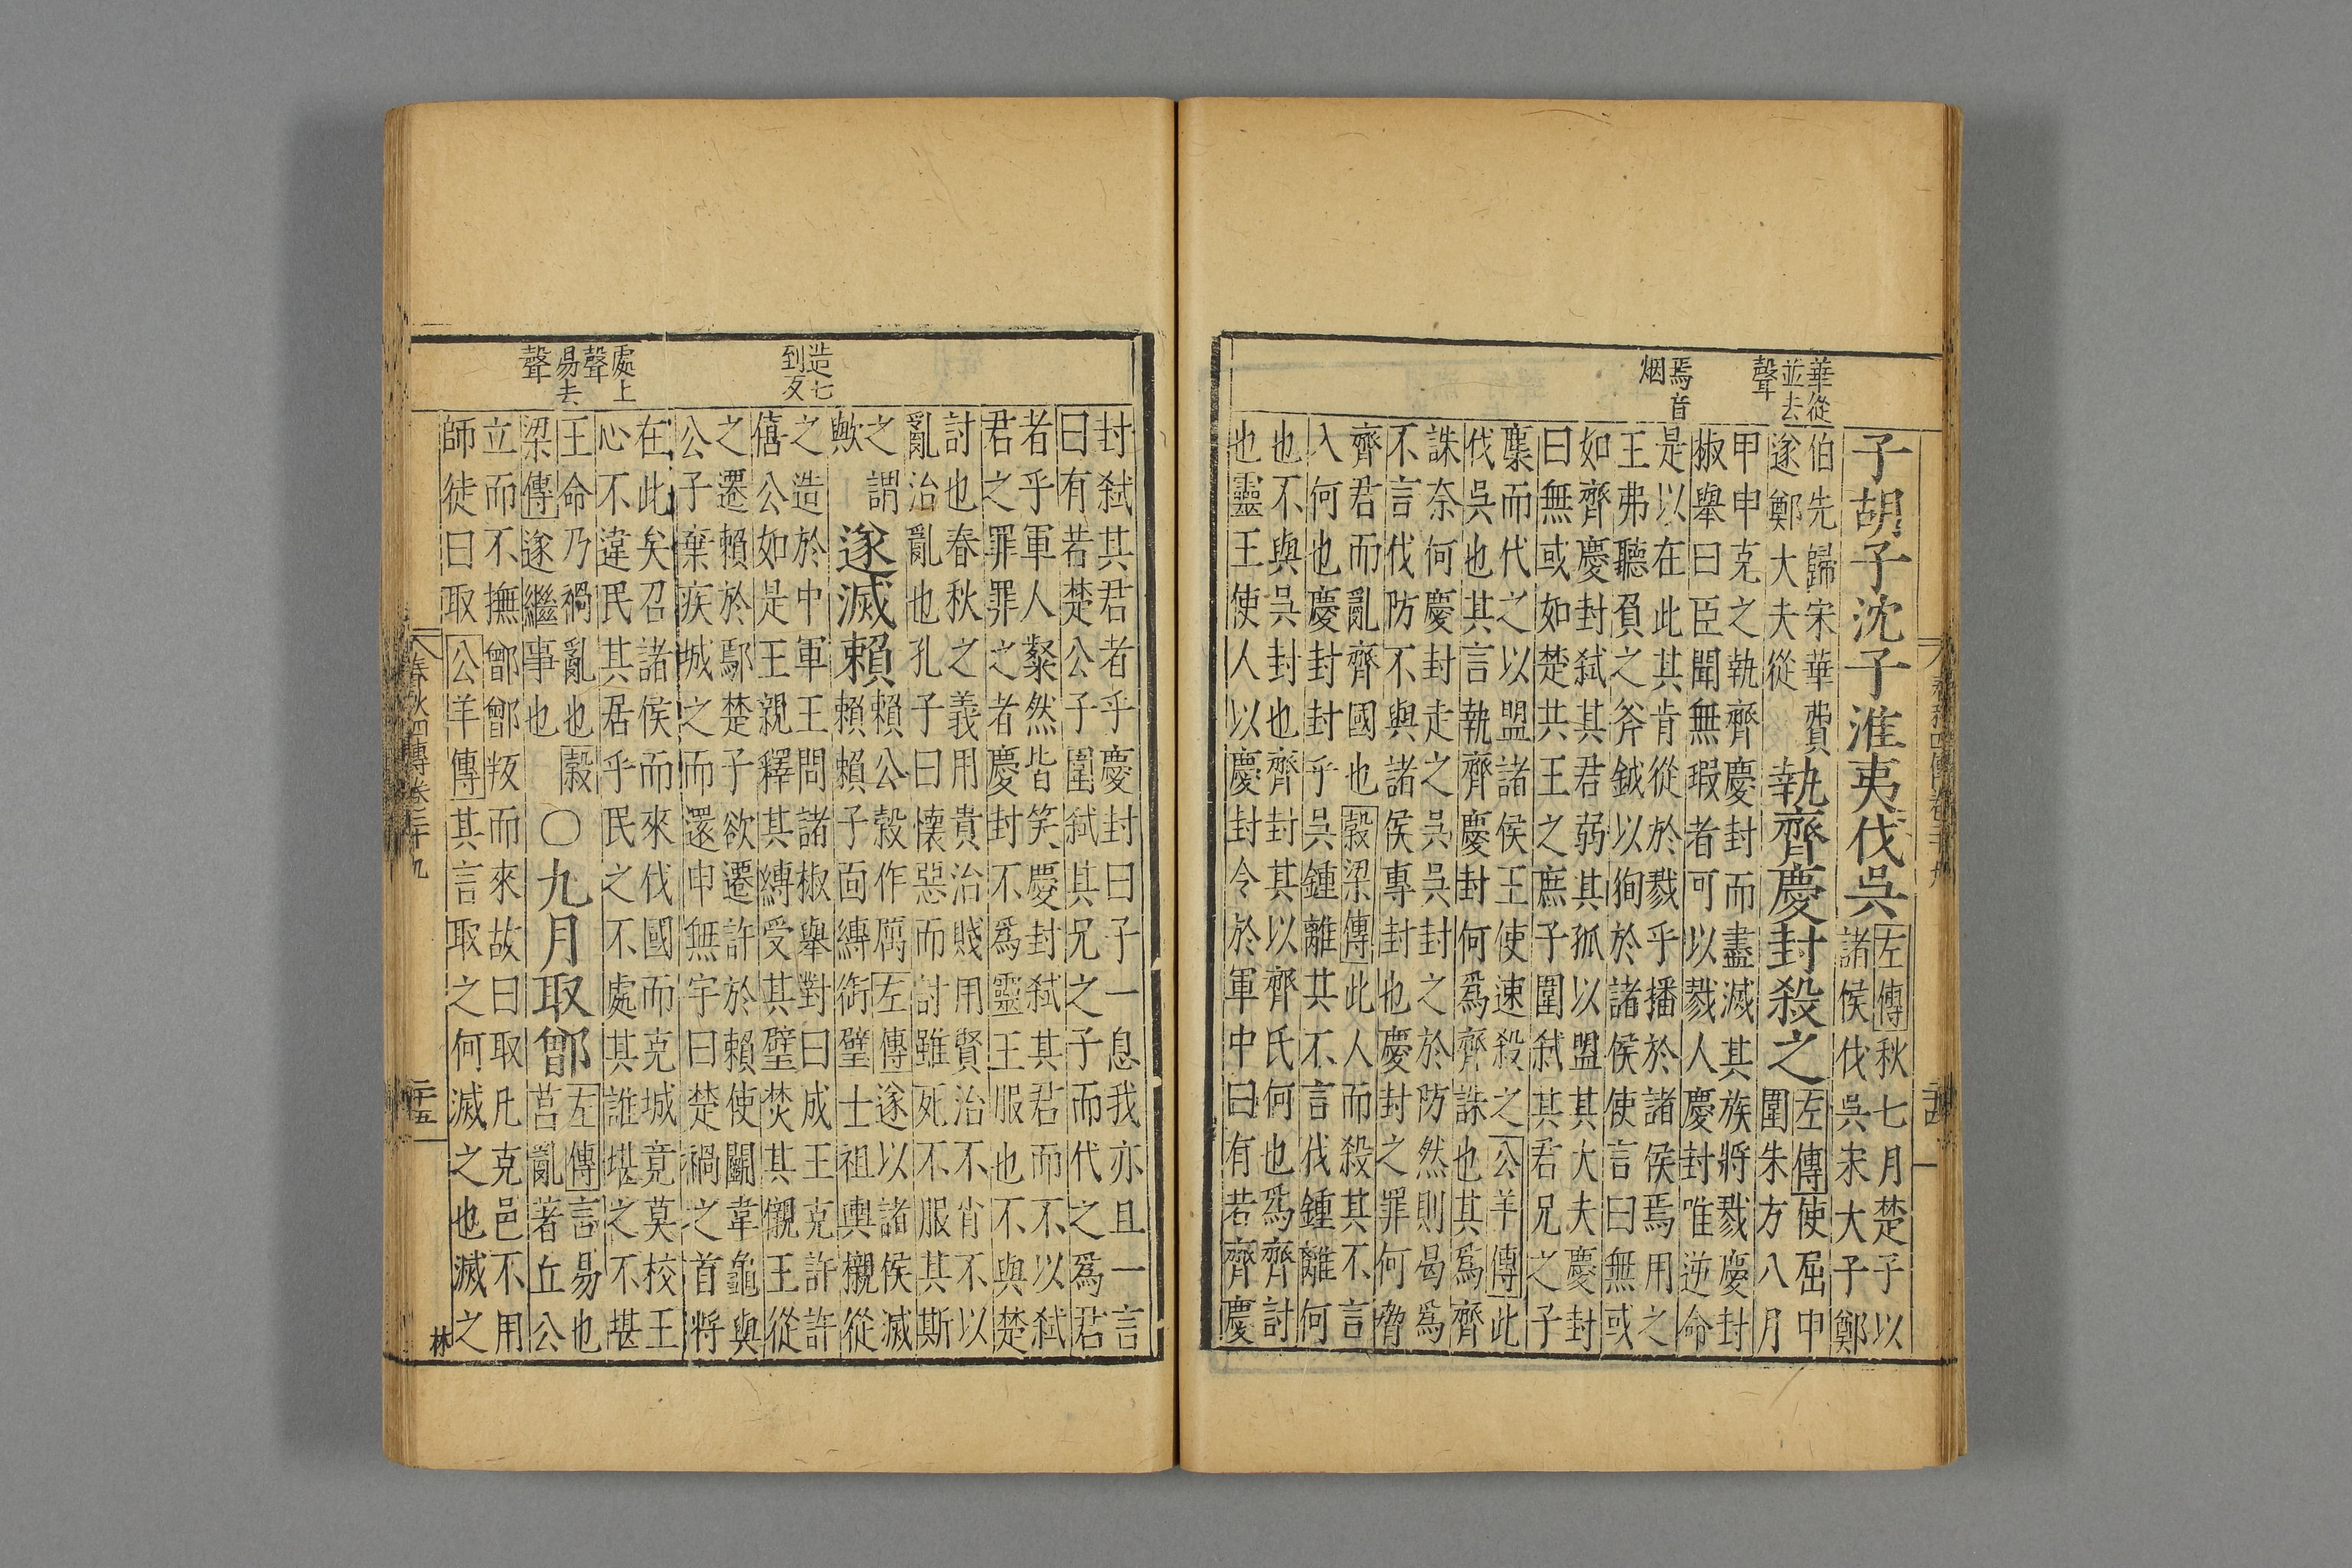 華從
並去
聲
焉音
烟
子胡子沈子淮夷伐吳左傳秋七月楚子以
諸侯伐吳宋大子鄭
伯先歸宋華費
遂鄭大夫從
執齊慶封殺之左傳使屈申
圍朱方八月
甲申克之執齊慶封而盡滅其族將戮慶封
椒舉曰臣聞無瑕者可以戮人慶封唯逆命
是以在此其肯從於戮乎播於諸侯焉用之
王弗聽負之斧鉞以狥於諸侯使言曰無或
如齊慶封弑其君弱其孤以盟其大夫慶封
曰無或如楚共王之庶子圍弑其君兄之子
麇而代之以盟諸侯王使速殺之公羊傳此
伐吳也其言執齊慶封何爲齊誅也其爲齊
誅奈何慶封走之吳吳封之於防然則曷爲
不言伐防不與諸侯專封也慶封之罪何脅
齊君而亂齊國也穀梁傳此人而殺其不言
入何也慶封封乎吳鍾離其不言伐鍾離何
也不與吳封也齊封其以齊氏何也爲齊討
也靈王使人以慶封令於軍中曰有若齊慶
造七
到反
處上
聲
易去
聲
封弑其君者乎慶封曰子一息我亦且一言
曰有若楚公子圍弑其兄之子而代之爲君
者乎軍人粲然皆笑慶封弑其君而不以弑
君之罪罪之者慶封不爲靈王服也不與楚
討也春秋之義用貴治賤用賢治不肖不以
亂治亂也孔子曰懷惡而討雖死不服其斯
之謂
歟
遂滅賴賴公穀作厲左傳遂以諸侯滅
賴賴子面縛銜璧士袒輿櫬從
之造於中軍王問諸椒舉對曰成王克許許
僖公如是王親釋其縛受其璧焚其櫬王從
之遷賴於鄢楚子欲遷許於賴使鬭韋龜與
公子棄疾城之而還申無宇曰楚禍之首將
在此矣召諸侯而來伐國而克城竟莫校王
心不違民其居乎民之不處其誰堪之不堪
王命乃禍亂也穀
梁傳遂繼事也
○九月取鄫左傳言易也
莒亂著丘公
立而不撫鄫鄫叛而來故曰取凡克邑不用
師徒曰取公羊傳其言取之何滅之也滅之
春秋四傳卷二十九
二十五
林